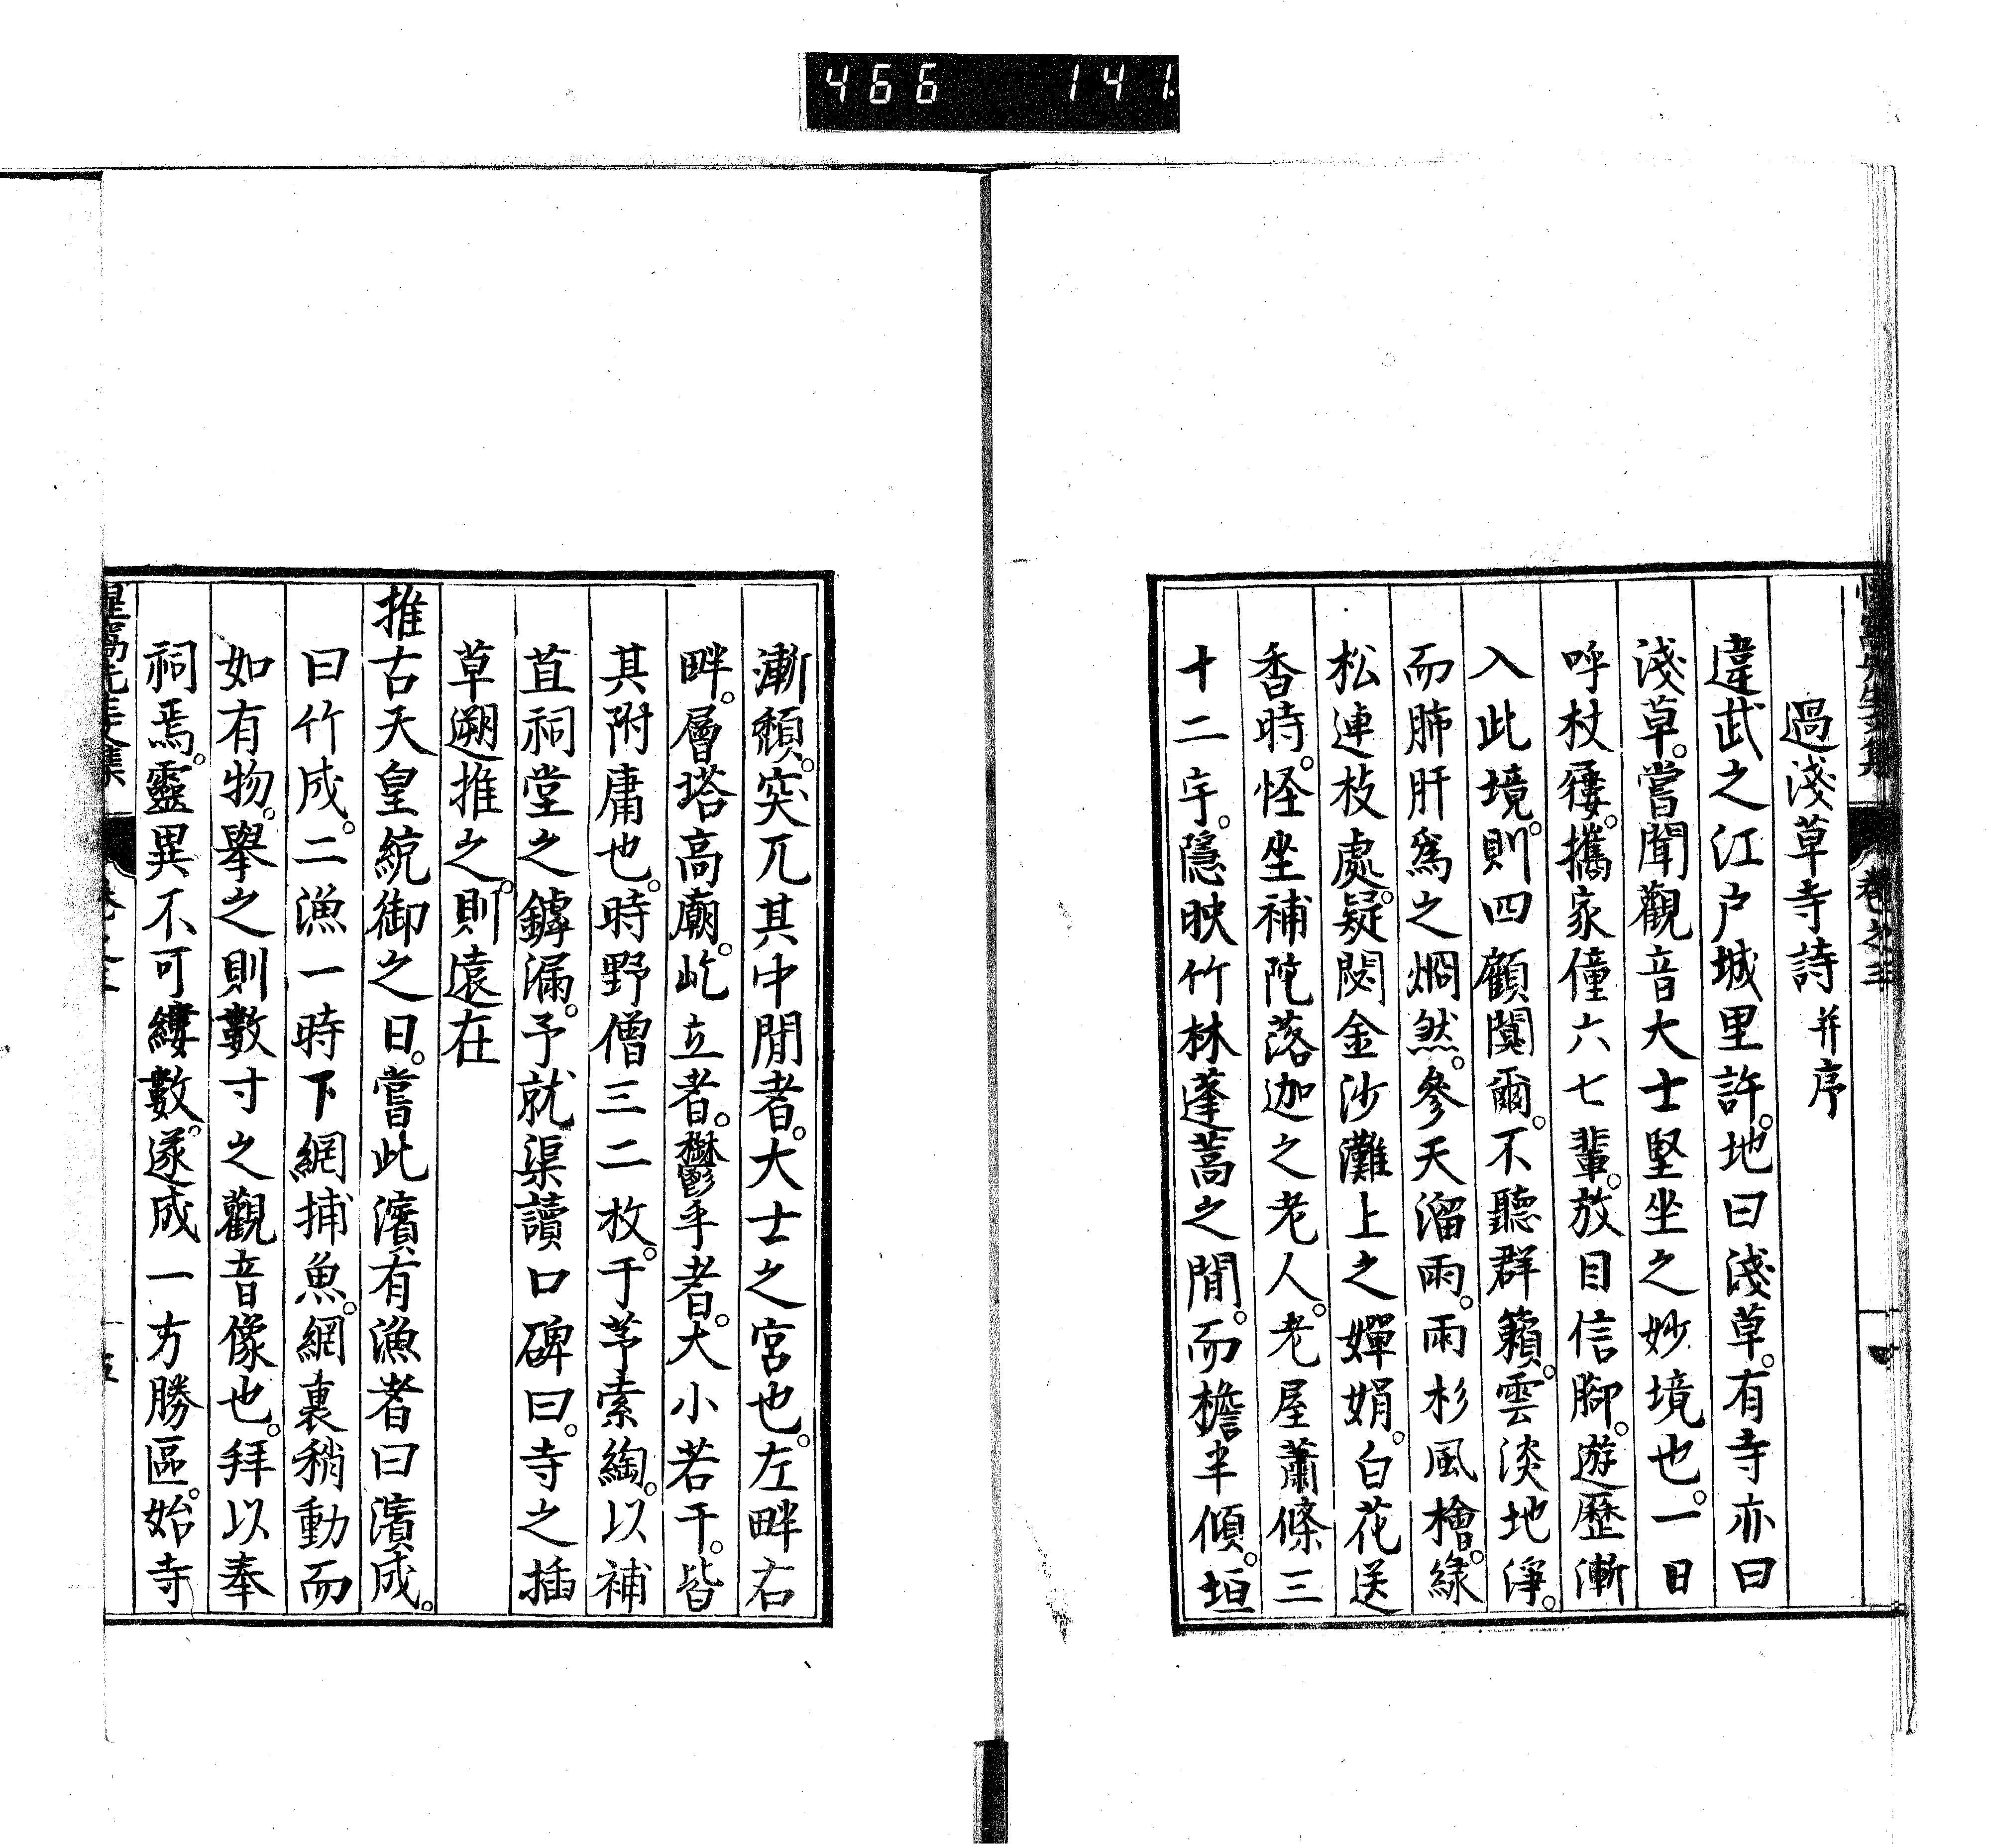 466 141
過淺草寺詩并序
違武之江戸城里許。地曰淺草。有寺亦曰
淺草。嘗聞觀音大士堅坐之妙境也。一日
呼杖䙚。攜家僮六七輩。放目信脚。遊歷漸
入此境。則四顧闃爾。不聽群籟。雲淡地淨。
而肺肝爲之烱然。參天溜雨。雨杉風檜。緑
松連枝處。疑閲金沙灘上之嬋娟。白花送
香時。怪坐補陀落迦之老人。老屋蕭條三
十二宇。隱映竹林蓬蒿之間。而檐半傾。垣
漸頽。突兀其中間者。大士之宮也。左畔右
畔。層塔高廟。屹立者。欝乎者。大小若干。皆
其附庸也。時野僧三二枚。于茅索綯。以補
苴祠堂之罅漏。予就渠讀口碑曰。寺之插
草遡推之。則遠在
推古天皇統御之日。嘗此濱有漁者曰濱成。
曰竹成。二漁一時下網捕魚。網裏稍動而
如有物。擧之則數寸之觀音像也。拜以奉
祠焉。靈異不可縷數。遂成一方勝區。始寺
惺窩先生文集 卷之三